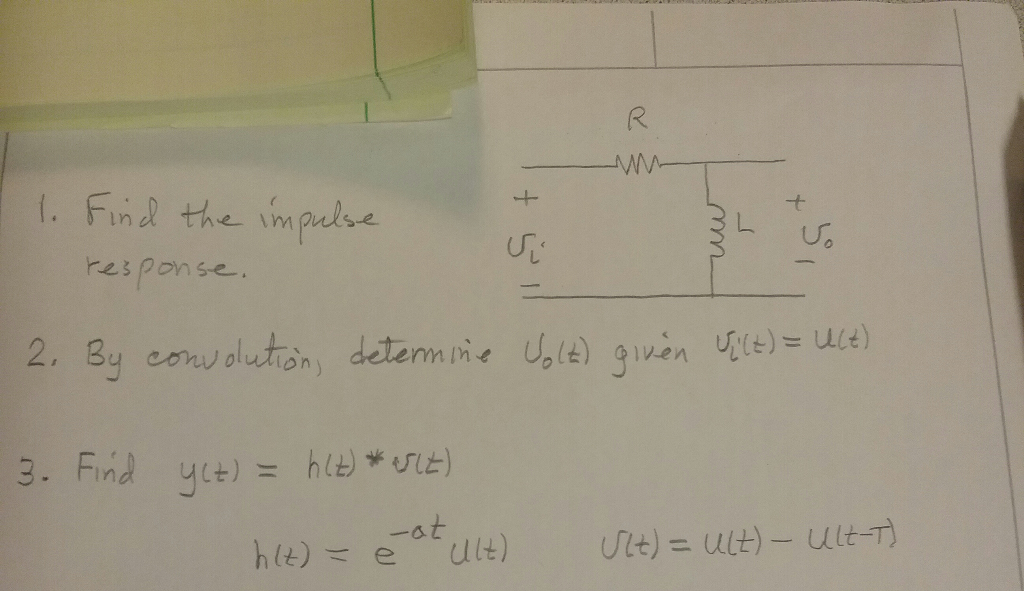 R
1. Find the impulse
response.
+
υi
−
L
+
υo
−
2. By convolution, determine υo(t) given υi(t) = u(t)
3. Find y(t) = h(t) * υ(t)
h(t) = e^-at u(t) υ(t) = u(t) − u(t-T)